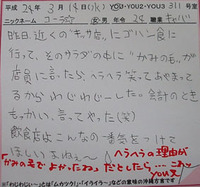 平成 24年 3月 14日(水) YOU-YOU2-YOU3 311号室
ニックネーム コーラ☆ 女・男 年令 26 職業 キャバ
昨日、近くの"キッサ店"にゴハン食に
行って、そのサラダの中に"かみの毛"が
店員に言ったら、ヘラヘラ笑ってあやまって
るからわじわじーした。会計のとき
もっかい、言ってやった(笑)
飲食店はこんなの一番気をつけて
ほしいよねぇ〜
ヘラヘラの理由が
「かみの毛でよかったね」
だとしたら…これッ
YOU支
※「わじわじ〜」とは「ムカツク」・「イライラ〜」などの意味の沖縄方言です